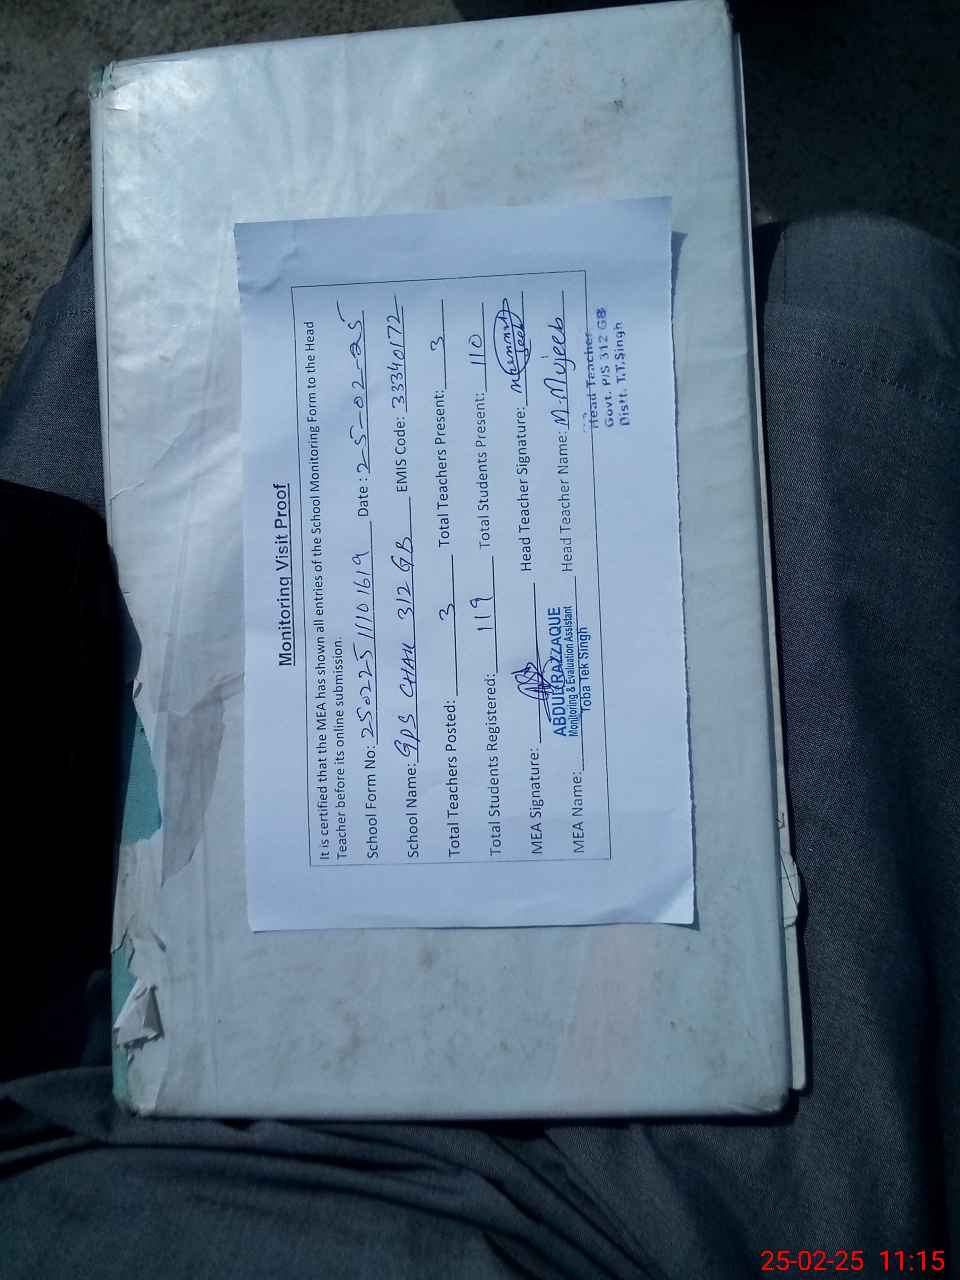 Monitoring Visit Proof
It is certified that the MEA has shown all entries of the School Monitoring Form to the Head
Teacher before its online submission.
School Form No: 25022511101619 Date: 25-02-25
School Name: GPS CHAK 312 GB EMIS Code: 33340172
Total Teachers Posted: 3 Total Teachers Present: 3
Total Students Registered: 119 Total Students Present: 110
MEA Signature: Head Teacher Signature:
ABDUL RAZZAQUE
Monitoring & Evaluation Assistant
Toba Tek Singh
MEA Name: Head Teacher Name: M. Mujeeb
Head Teacher
Govt. P/S 312 GB
Distt. T.T.Singh
25-02-25 11:15